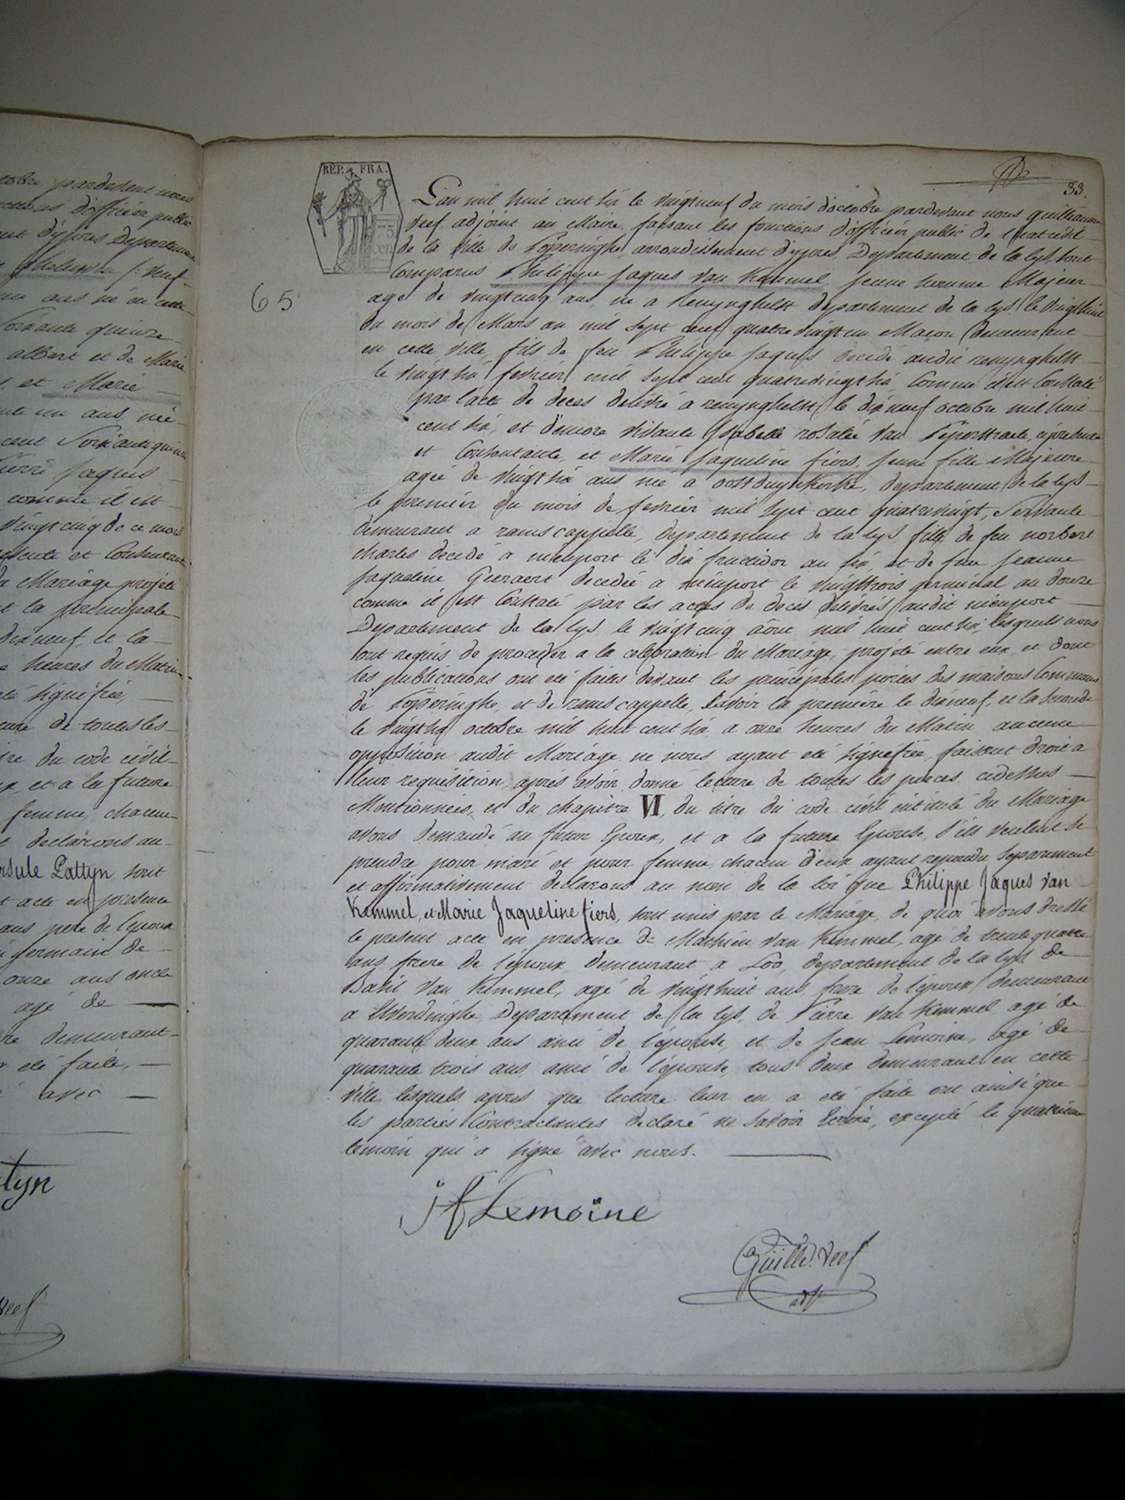 obre pardevant nous
d'officier public
ent d'ypres Departement
ans né en cette
Soixante quinze
albert et de Marie
et Marie
un ans née
cent Soixante quinze
Pierre Jaques
comme il est
vingt cinq de ce mois
et Consentante
Mariage projeté
la principale
dixneuf, et la
heures du Matin
été signifiée,
de toutes les
du code civil
et a la future
femme, chacun
declarons au
rsule Pattyn sont
acte en presence
ans pere de l'epoux
germain de
onze ans once
agé de
demeurant
été faite,
avec
tyn
Veef
REP. FRA.
33.
65
L'an mil huit cent six le vingtneuf du mois d'octobre pardevant nous guilliaume
Veef adjoint au Maire, faisant les fonctions d'officier public de l'etat civil
de la ville de Poperinghe arrondissement d'ypres, Departement de la lys, sont
Comparus Philippe Jaques Van Kemmel Jeune homme Majeur
agé de vingtcinq ans né a Renynghelst departement de la lys le vingthuit
du mois de Mars an mil sept cent quatrevingt un Maçon demeurant
en cette ville, fils de feu Philippe Jaques decedé audit renynghelst
le vingtsix fevrier mil sept cent quatrevingtsix Comme c'est Constaté
par l'acte de deces delivré a renynghelst le dixneuf octobre mil huit
cent six, et d'encore vivante Isabelle rosalie Van Peperstraete, ci presente
et Consentante et Marie Jaqueline fiers, Jeune fille Majeure
agée de vingtsix ans née a oostduynkerke, departement de la lys
le premier du mois de fevrier mil sept cent quatrevingt, Servante
demeurant a ramscappelle, departement de la lys fille de feu norbert
charles decedé a nieuport le dix fructidor an six, et de feue Jeanne
Jaqueline Gueraert decedée a nieuport le vingttrois germinal an douze
comme il est Constaté par les actes de deces delivrés audit nieuport
Departement de la lys, le vingtcinq aout mil huit cent six, lesquels nous
sont requis de proceder a la celebration du Mariage, projeté entre eux, et dont
les publications ont été faites devant les principales portes des maisons Communes
de Poperinghe, et de ramscappelle, Savoir la première le dixneuf, et la seconde
le vingtsix octobre mil huit cent six, a onze heures du Matin aucune
opposition audit Mariage ne nous ayant été signifiée, faisant droit a
leur requisition, apres avoir donné lecture de toutes les pieces cidessus
Mentionnées, et du chapitre VI, du titre du code civil intitulé du Mariage
avons demandé au futur Epoux, et a la future Epouse, s'ils veulent se
prendre pour mari et pour femme, chacun d'eux ayant repondu separement
et affirmativement declarons au nom de la loi que Philippe Jaques Van
Kemmel, et Marie Jaqueline fiers, sont unis par le Mariage, de quoi avons dressé
le present acte en presence de Mathieu Van Kemmel, agé de trente quatre
ans frere de l'epoux demeurant a Loo, departement de la lys de
Basil Van Kemmel, agé de vingthuit ans, frere de l'epoux demeurant
a Elverdinghe, Departement de la lys, de Pierre Van Kemmel agé de
quarante deux ans ami de l'epouse et de Jean Lemoine, agé de
quarante trois ans, ami de l'epouse, tous deux demeurant en cette
ville lesquels apres que lecture leur en a été faite ont ainsi que
les parties Contractantes declaré ne savoir Ecrire, excepté le quatrieme
temoin qui a signé avec nous.
Lemoine
Guill. Veef
adjt